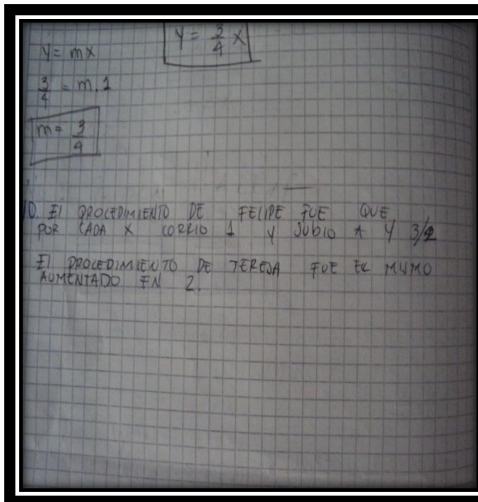 y = 3/4 x
y = mx
3/4 = m.1
m = 3/4
10. El PROCEDIMIENTO DE FELIPE FUE QUE
POR CADA X CORRIO 1 Y SUBIO A Y 3/2
El PROCEDIMIENTO DE TERESA FUE EL MISMO
AUMENTADO EN 2.